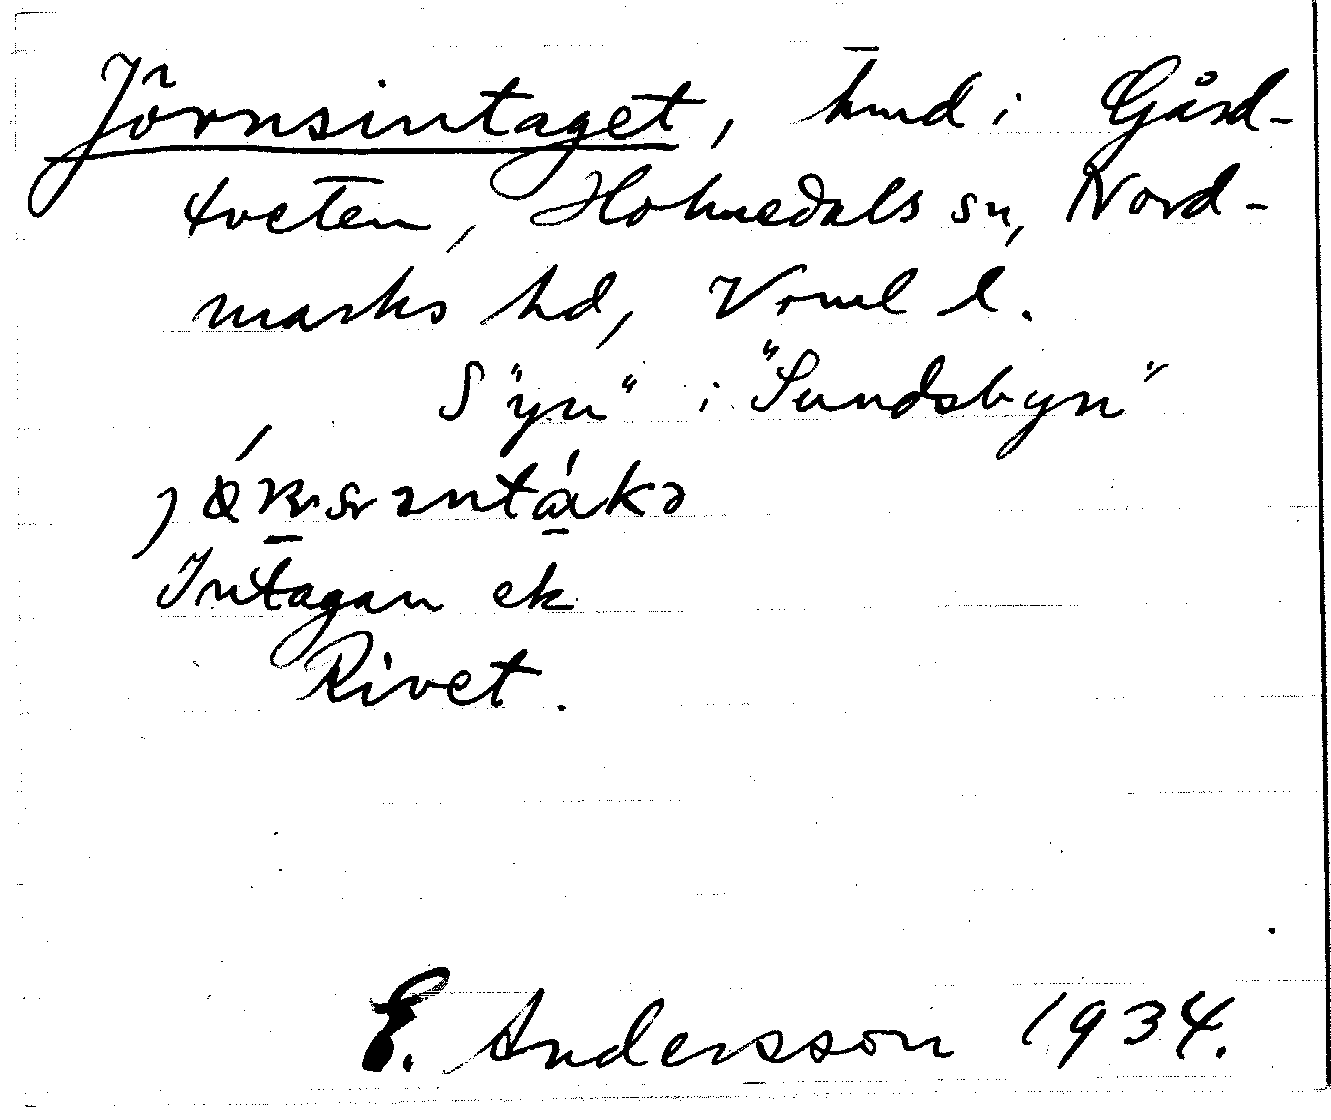 Jörnsintaget, hmd i Gård-
tveten, Holmedals sn, Nord-
marks hd, Vrml l.
S "yn" i "Sundsbyn"
Intagan ek
Rivet.
E. Andersson 1934.